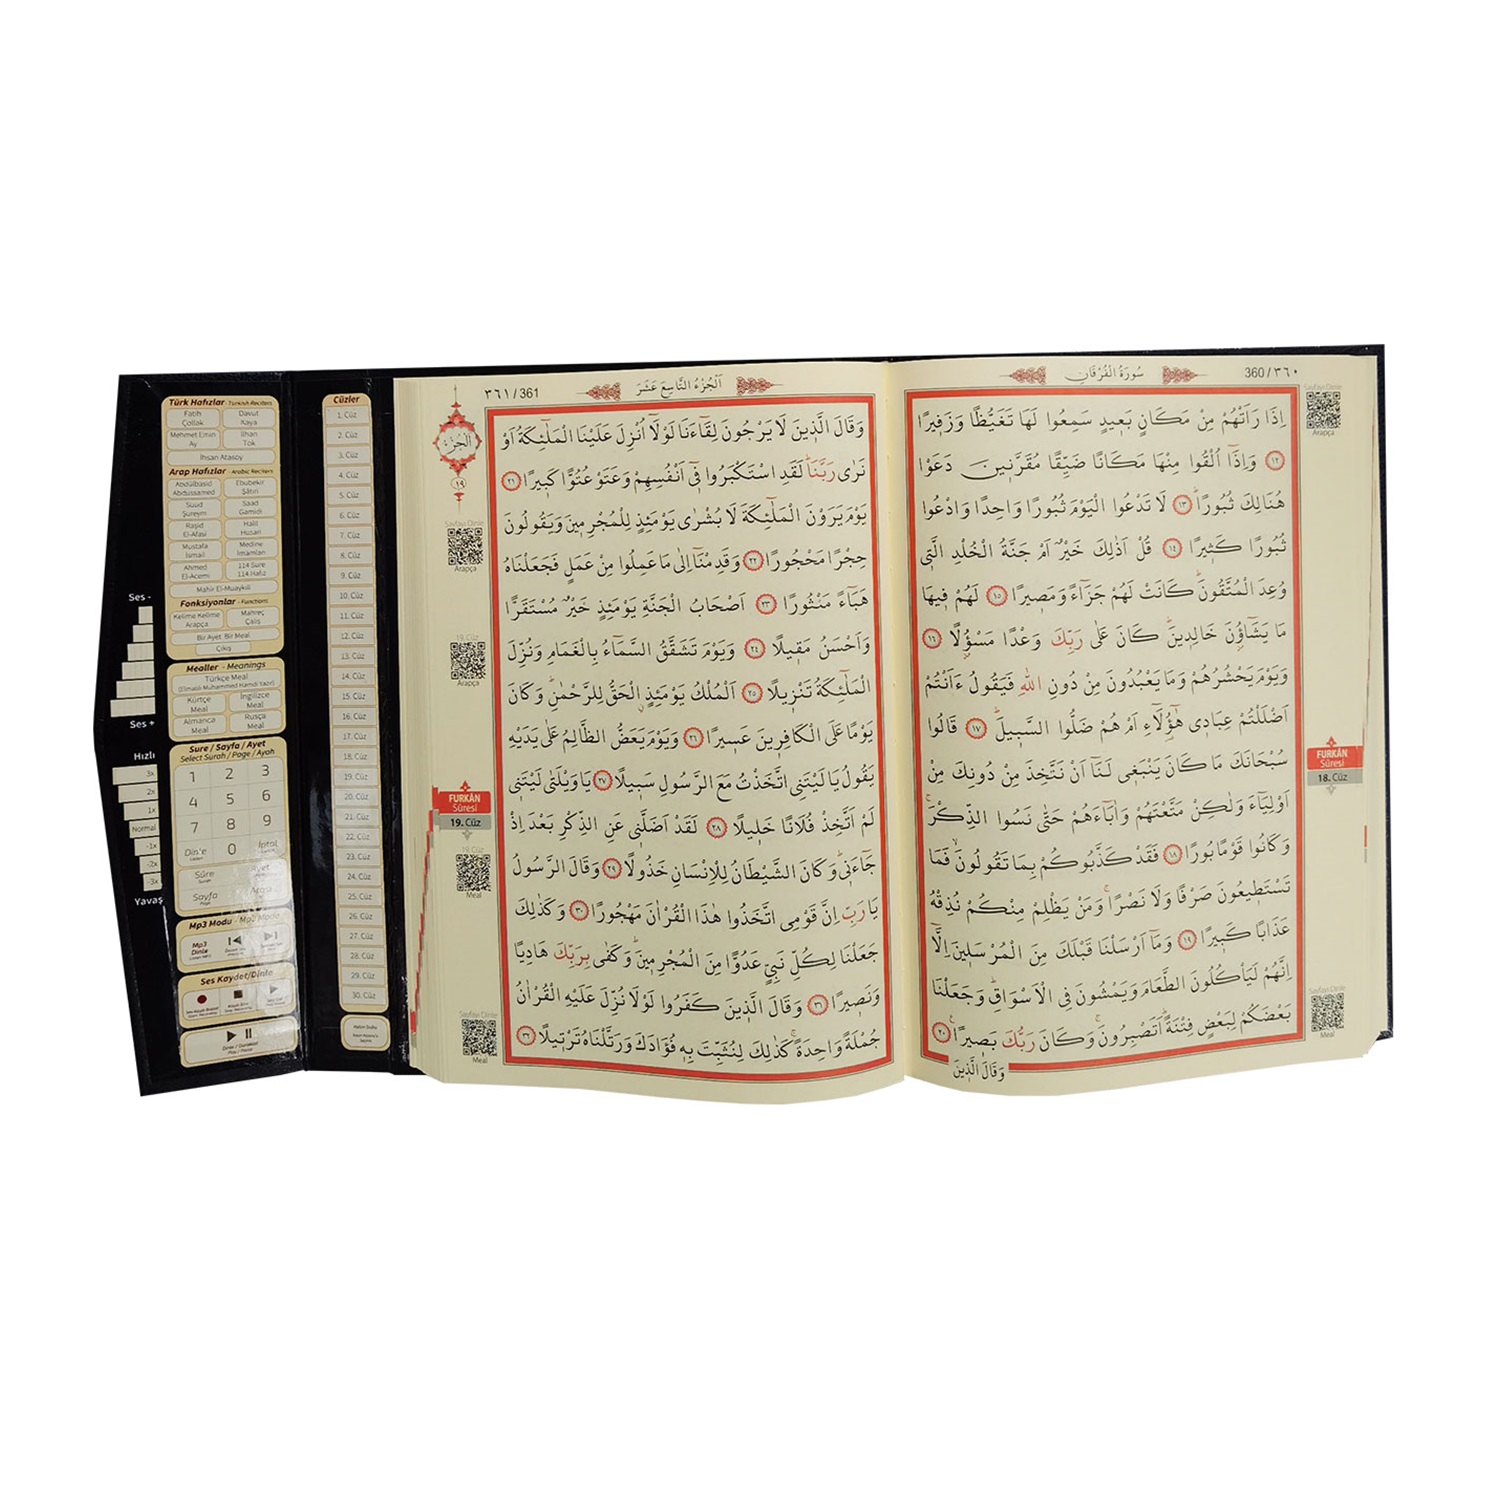 Türk Hafızlar - Turkish Reciters
Fatih Çollak
Davut Kaya
Mehmet Emin Ay
İlhan Tok
İhsan Atasoy
Arap Hafızlar - Arabic Reciters
Abdülbasid Abdussamed
Ebubekir Şâtiri
Suud Şureym
Saad Gamidi
Raşid El-Afasi
Halil Husari
Mustafa İsmail
Medine İmamları
Ahmed El-Acemi
114 Sure 114 Hafız
Mahir El-Muaykili
Fonksiyonlar - Functions
Kelime Kelime Arapça
Mahreç Çalış
Bir Ayet Bir Meal
Çıkış
Mealler - Meanings
Türkçe Meal
(Elmalılı Muhammed Hamdi Yazır)
Kürtçe Meal
İngilizce Meal
Almanca Meal
Rusça Meal
Sure / Sayfa / Ayet
Select Surah / Page / Ayah
1 2 3
4 5 6
7 8 9
Din'e 0 İptal
Sûre
Ayet
Sayfa
Mp3 Modu - Mp3 Mode
Mp3 Dinle
Ses Kaydet/Dinle
Ses -
Ses +
Hızlı
3x
2x
1x
Normal
-1x
-2x
-3x
Yavaş
Cüzler
1. Cüz
2. Cüz
3. Cüz
4. Cüz
5. Cüz
6. Cüz
7. Cüz
8. Cüz
9. Cüz
10. Cüz
11. Cüz
12. Cüz
13. Cüz
14. Cüz
15. Cüz
16. Cüz
17. Cüz
18. Cüz
19. Cüz
20. Cüz
21. Cüz
22. Cüz
23. Cüz
24. Cüz
25. Cüz
26. Cüz
27. Cüz
28. Cüz
29. Cüz
30. Cüz
Hatim Duâsı
سُورَةُ الْفُرْقَانِ
360 / ٣٦٠
اِذَا رَاَتْهُمْ مِنْ مَكَانٍ بَعٖيدٍ سَمِعُوا لَهَا تَغَيُّظًا وَزَفٖيرًا
﴿١٢﴾ وَاِذَٓا اُلْقُوا مِنْهَا مَكَانًا ضَيِّقًا مُقَرَّنٖينَ دَعَوْا
هُنَالِكَ ثُبُورًاؕ ﴿١٣﴾ لَا تَدْعُوا الْيَوْمَ ثُبُورًا وَاحِدًا وَادْعُوا
ثُبُورًا كَثٖيرًا ﴿١٤﴾ قُلْ اَذٰلِكَ خَيْرٌ اَمْ جَنَّةُ الْخُلْدِ الَّتٖي
وُعِدَ الْمُتَّقُونَؕ كَانَتْ لَهُمْ جَزَٓاءً وَمَصٖيرًا ﴿١٥﴾ لَهُمْ فٖيهَا
مَا يَشَٓاؤُ۫نَ خَالِدٖينَؕ كَانَ عَلٰى رَبِّكَ وَعْدًا مَسْؤُ۫لًا ﴿١٦﴾
وَيَوْمَ يَحْشُرُهُمْ وَمَا يَعْبُدُونَ مِنْ دُونِ اللّٰهِ فَيَقُولُ ءَاَنْتُمْ
اَضْلَلْتُمْ عِبَادٖي هٰٓؤُ۬لَٓاءِ اَمْ هُمْ ضَلُّوا السَّبٖيلَؕ ﴿١٧﴾ قَالُوا
سُبْحَانَكَ مَا كَانَ يَنْبَغٖي لَنَٓا اَنْ نَتَّخِذَ مِنْ دُونِكَ مِنْ
اَوْلِيَٓاءَ وَلٰكِنْ مَتَّعْتَهُمْ وَاٰبَٓاءَهُمْ حَتّٰى نَسُوا الذِّكْرَۚ
وَكَانُوا قَوْمًا بُورًا ﴿١٨﴾ فَقَدْ كَذَّبُوكُمْ بِمَا تَقُولُونَۙ فَمَا
تَسْتَطٖيعُونَ صَرْفًا وَلَا نَصْرًاۚ وَمَنْ يَظْلِمْ مِنْكُمْ نُذِقْهُ
عَذَابًا كَبٖيرًا ﴿١٩﴾ وَمَٓا اَرْسَلْنَا قَبْلَكَ مِنَ الْمُرْسَلٖينَ اِلَّٓا
اِنَّهُمْ لَيَأْكُلُونَ الطَّعَامَ وَيَمْشُونَ فِي الْاَسْوَاقِؕ وَجَعَلْنَا
بَعْضَكُمْ لِبَعْضٍ فِتْنَةًؕ اَتَصْبِرُونَۚ وَكَانَ رَبُّكَ بَصٖيرًاۚ ﴿٢٠﴾
وَقَالَ الَّذٖينَ
Sayfayı Dinle
Arapça
FURKÂN
Sûresi
18. Cüz
Sayfayı Dinle
Meal
٣٦١ / 361
اَلْجُزْءُ التَّاسِعَ عَشَرَ
وَقَالَ الَّذٖينَ لَا يَرْجُونَ لِقَٓاءَنَا لَوْلَٓا اُنْزِلَ عَلَيْنَا الْمَلٰٓئِكَةُ اَوْ
نَرٰى رَبَّنَاؕ لَقَدِ اسْتَكْبَرُوا فٖٓي اَنْفُسِهِمْ وَعَتَوْ عُتُوًّا كَبٖيرًا ﴿٢١﴾
يَوْمَ يَرَوْنَ الْمَلٰٓئِكَةَ لَا بُشْرٰى يَوْمَئِذٍ لِلْمُجْرِمٖينَ وَيَقُولُونَ
حِجْرًا مَحْجُورًا ﴿٢٢﴾ وَقَدِمْنَٓا اِلٰى مَا عَمِلُوا مِنْ عَمَلٍ فَجَعَلْنَاهُ
هَبَٓاءً مَنْثُورًا ﴿٢٣﴾ اَصْحَابُ الْجَنَّةِ يَوْمَئِذٍ خَيْرٌ مُسْتَقَرًّا
وَاَحْسَنُ مَقٖيلًا ﴿٢٤﴾ وَيَوْمَ تَشَقَّقُ السَّمَٓاءُ بِالْغَمَامِ وَنُزِّلَ
الْمَلٰٓئِكَةُ تَنْزٖيلًا ﴿٢٥﴾ اَلْمُلْكُ يَوْمَئِذٍۨ الْحَقُّ لِلرَّحْمٰنِؕ وَكَانَ
يَوْمًا عَلَى الْكَافِرٖينَ عَسٖيرًا ﴿٢٦﴾ وَيَوْمَ يَعَضُّ الظَّالِمُ عَلٰى يَدَيْهِ
يَقُولُ يَا لَيْتَنِي اتَّخَذْتُ مَعَ الرَّسُولِ سَبٖيلًا ﴿٢٧﴾ يَا وَيْلَتٰى لَيْتَنٖي
لَمْ اَتَّخِذْ فُلَانًا خَلٖيلًا ﴿٢٨﴾ لَقَدْ اَضَلَّنٖي عَنِ الذِّكْرِ بَعْدَ اِذْ
جَٓاءَنٖيؕ وَكَانَ الشَّيْطَانُ لِلْاِنْسَانِ خَذُولًا ﴿٢٩﴾ وَقَالَ الرَّسُولُ
يَا رَبِّ اِنَّ قَوْمِي اتَّخَذُوا هٰذَا الْقُرْاٰنَ مَهْجُورًا ﴿٣٠﴾ وَكَذٰلِكَ
جَعَلْنَا لِكُلِّ نَبِيٍّ عَدُوًّا مِنَ الْمُجْرِمٖينَؕ وَكَفٰى بِرَبِّكَ هَادِيًا
وَنَصٖيرًا ﴿٣١﴾ وَقَالَ الَّذٖينَ كَفَرُوا لَوْلَا نُزِّلَ عَلَيْهِ الْقُرْاٰنُ
جُمْلَةً وَاحِدَةًۚ كَذٰلِكَ لِنُثَبِّتَ بِهٖ فُؤٰادَكَ وَرَتَّلْنَاهُ تَرْتٖيلًا ﴿٣٢﴾
اَلْجُزْءُ
١٩
Sayfayı Dinle
Arapça
19. Cüz
Arapça
FURKÂN
Sûresi
19. Cüz
19. Cüz
Meal
Sayfayı Dinle
Meal